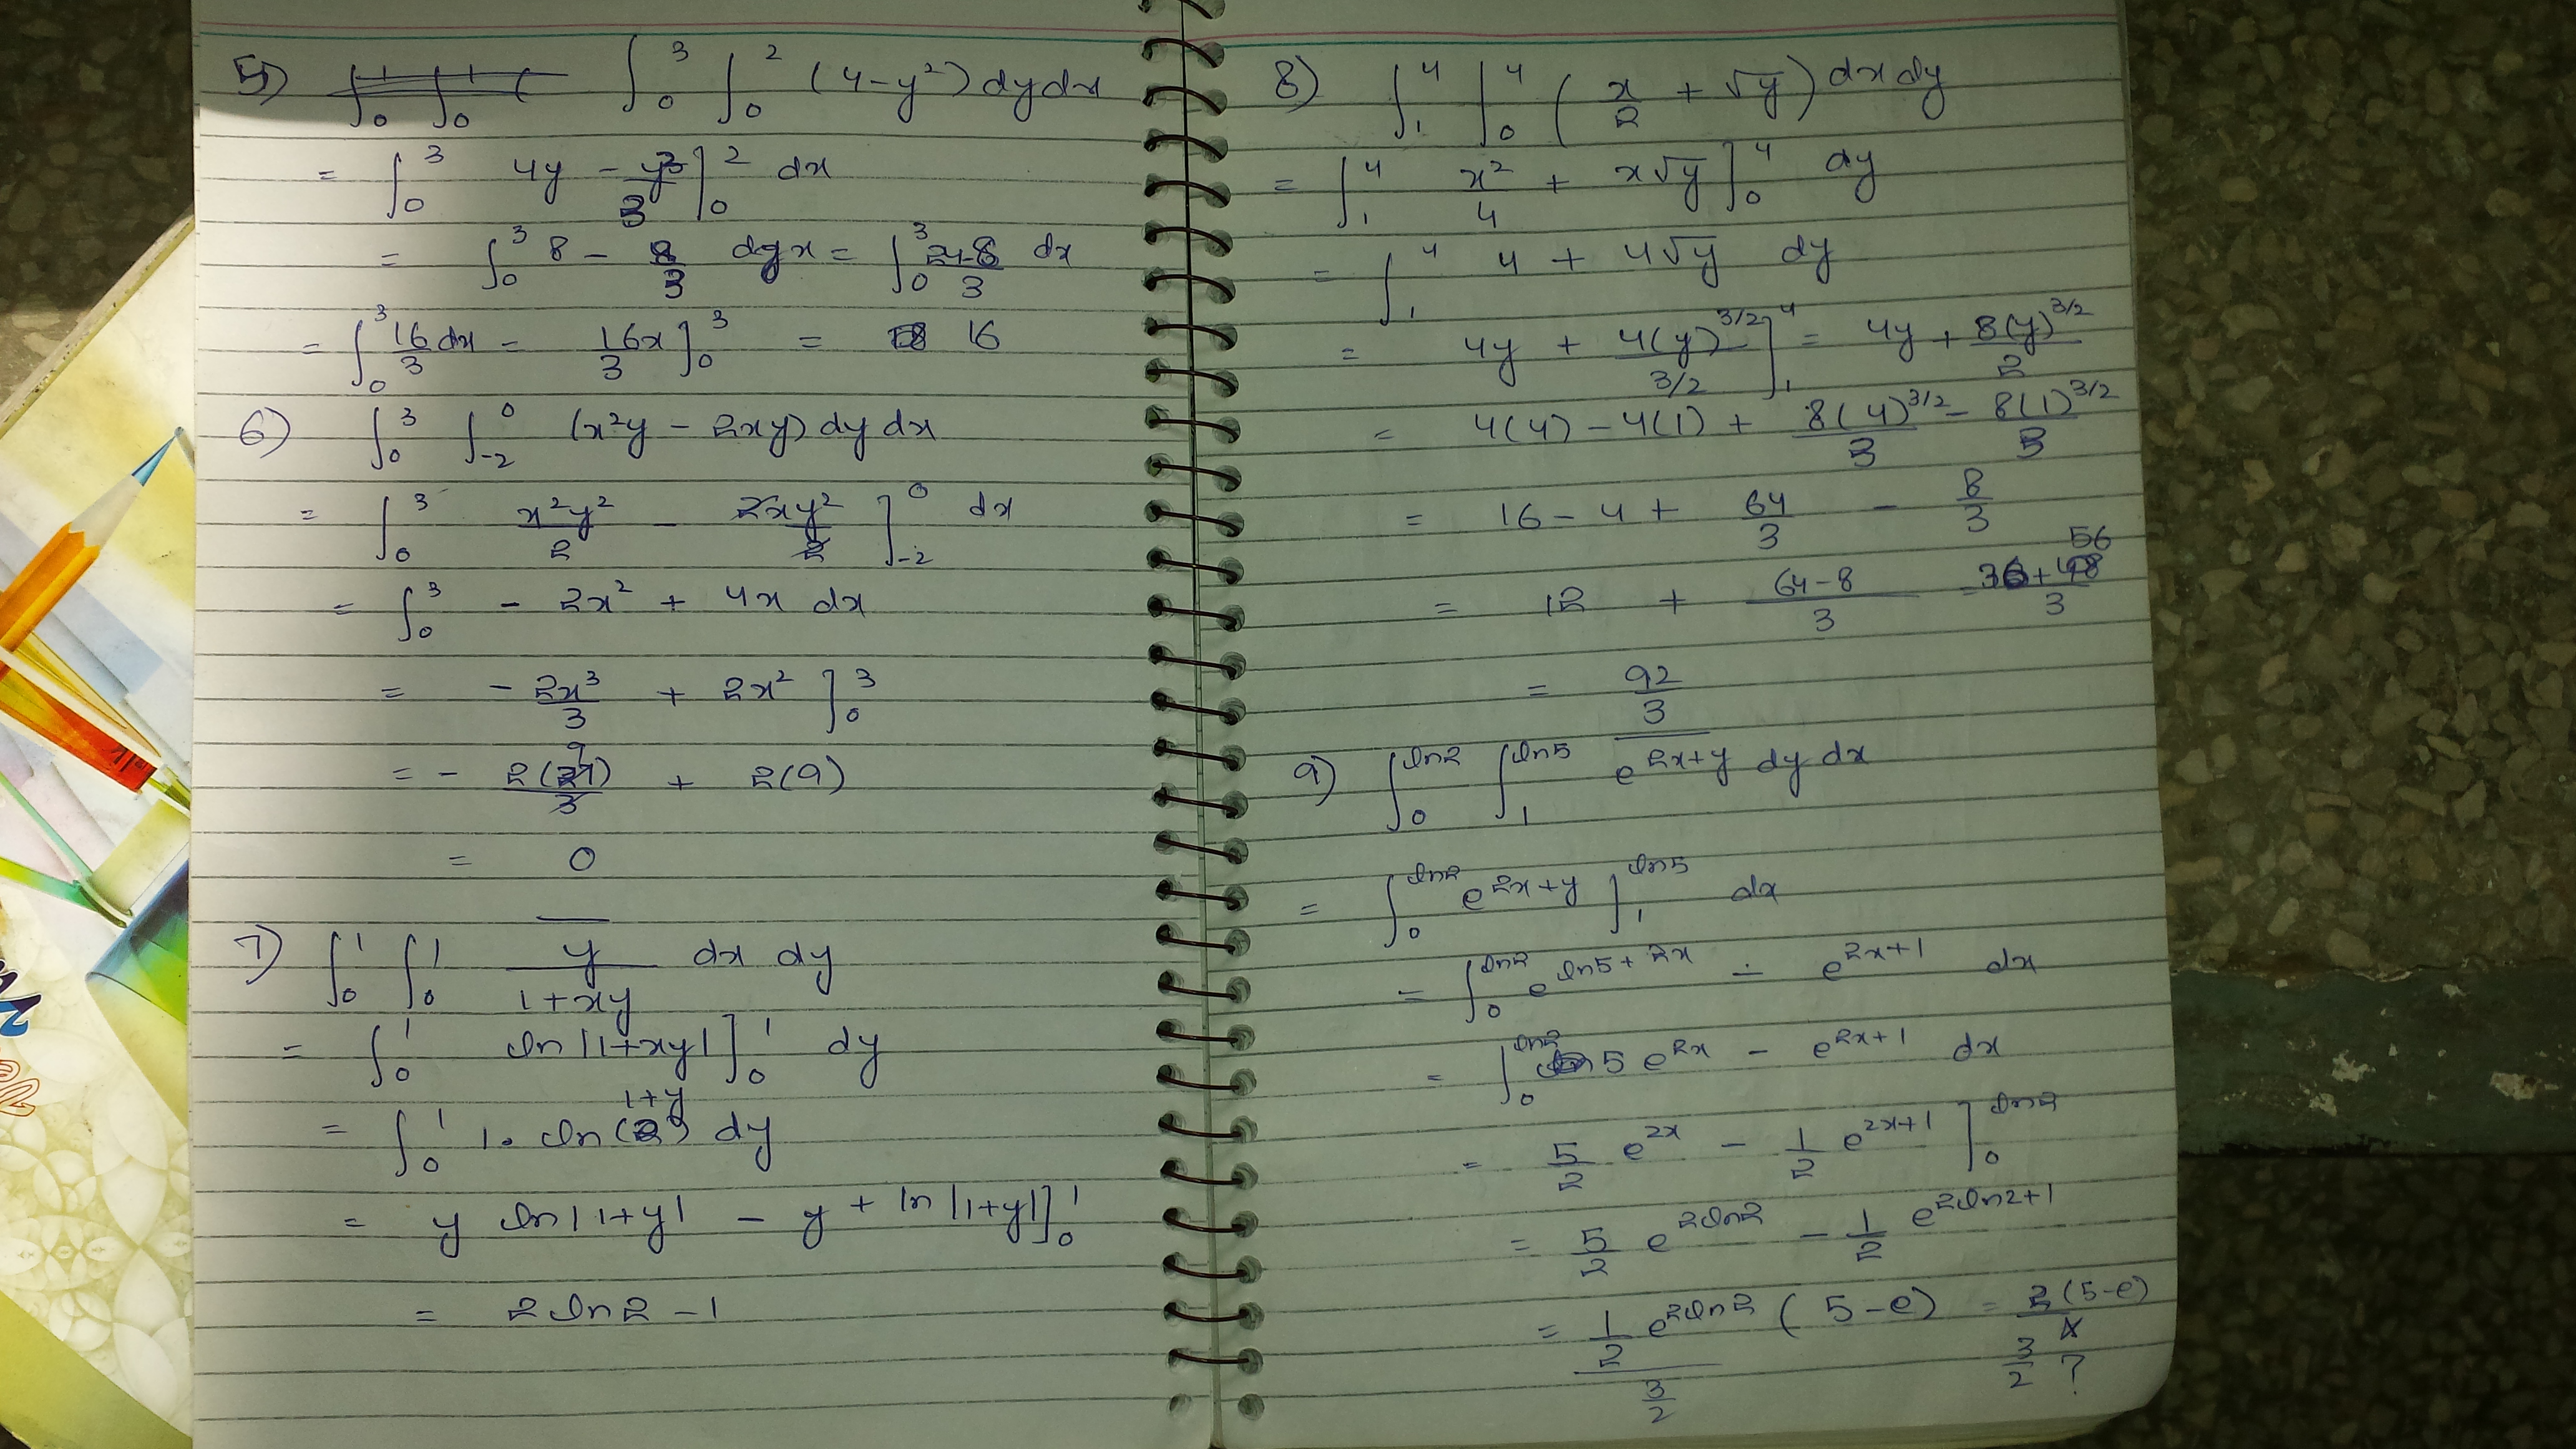 5) ∫₀³ ∫₀² (4-y²) dy dx
= ∫₀³ 4y - y³/3 ]₀² dx
= ∫₀³ 8 - 8/3 dx = ∫₀³ 24-8/3 dx
= ∫₀³ 16/3 dx = 16x/3 ]₀³ = 16
6) ∫₀³ ∫₋₂⁰ (x²y - 2xy) dy dx
= ∫₀³ x²y²/2 - 2xy²/2 ]₋₂⁰ dx
= ∫₀³ - 2x² + 4x dx
= - 2x³/3 + 2x² ]₀³
= - 2(27)/3 + 2(9)
= 0
7) ∫₀¹ ∫₀¹ y/1+xy dx dy
= ∫₀¹ ln|1+xy| ]₀¹ dy
= ∫₀¹ 1. ln(1+y) dy
= y ln|1+y| - y + ln|1+y| ]₀¹
= 2 ln 2 - 1
8) ∫₁⁴ ∫₀⁴ (x/2 + √y) dx dy
= ∫₁⁴ x²/4 + x√y ]₀⁴ dy
= ∫₁⁴ 4 + 4√y dy
= 4y + 4(y)^3/2 / 3/2 ]₁⁴ = 4y + 8(y)^3/2 / 3
= 4(4) - 4(1) + 8(4)^3/2 / 3 - 8(1)^3/2 / 3
= 16 - 4 + 64/3 - 8/3
= 12 + 64-8/3 = 36+56/3
= 92/3
9) ∫₀^ln2 ∫₁^ln5 e^2x+y dy dx
= ∫₀^ln2 e^2x+y ]₁^ln5 dx
= ∫₀^ln2 e^ln5+2x - e^2x+1 dx
= ∫₀^ln2 5 e^2x - e^2x+1 dx
= 5/2 e^2x - 1/2 e^2x+1 ]₀^ln2
= 5/2 e^2ln2 - 1/2 e^2ln2+1
= 1/2 e^2ln2 (5-e) = 2(5-e)
3/2 3/2 ?